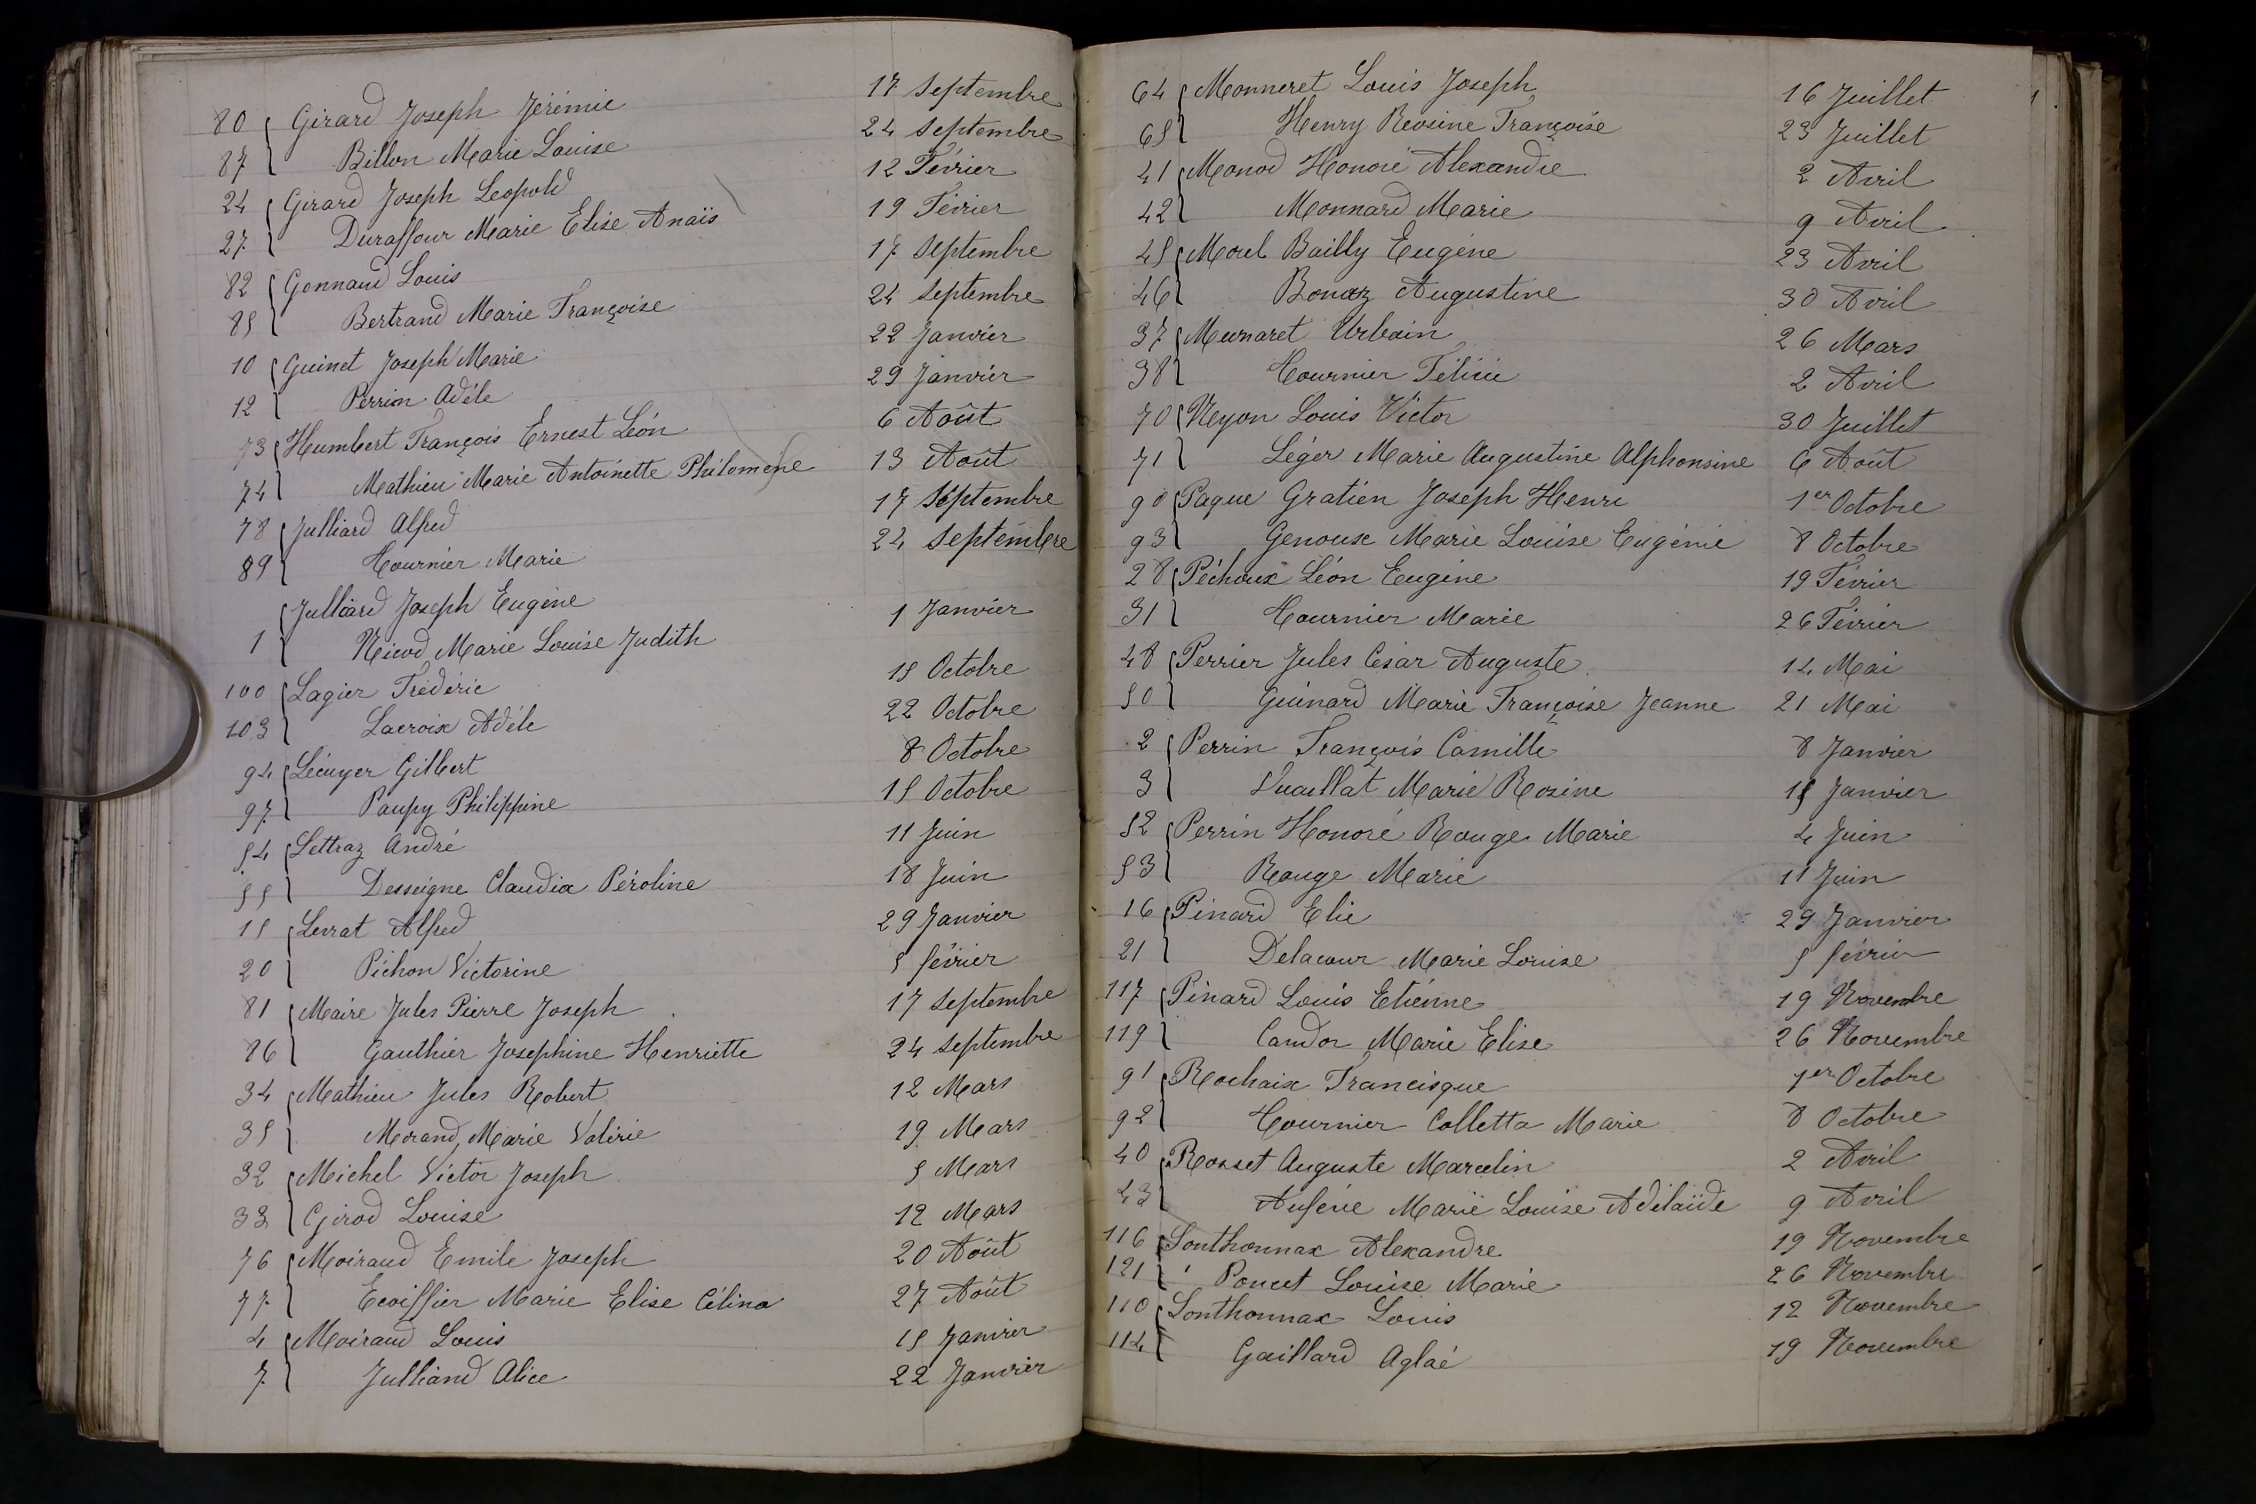 80 Girard Joseph Jérémie 17 Septembre
87 Billon Marie Louise 24 Septembre
24 Girard Joseph Léopold 12 Février
27 Duraffour Marie Elise Anaïs 19 Février
82 Gonnaud Louis 17 Septembre
85 Bertrand Marie Françoise 24 Septembre
10 Guinet Joseph Marie 22 Janvier
12 Perrin Adèle 29 Janvier
73 Humbert François Ernest Léon 6 Août
74 Mathieu Marie Antoinette Philomène 13 Août
78 Julliard Alfred 17 Septembre
89 Hournier Marie 24 Septembre
Julliard Joseph Eugène
1 Nicod Marie Louise Judith 1 Janvier
100 Lagier Frédéric 15 Octobre
103 Lacroix Adèle 22 Octobre
94 Lécuyer Gilbert 8 Octobre
97 Paupy Philippine 15 Octobre
54 Lettraz André 11 Juin
55 Desseigne Claudia Péroline 18 Juin
15 Levrat Alfred 29 Janvier
20 Pichon Victorine 5 février
81 Maire Jules Pierre Joseph 17 Septembre
86 Gauthier Josephine Henriette 24 Septembre
34 Mathieu Jules Robert 12 Mars
35 Morand Marie Valérie 19 Mars
32 Michel Victor Joseph 5 Mars
33 Girod Louise 12 Mars
76 Moiraud Emile Joseph 20 Août
77 Ecoiffier Marie Elise Célina 27 Août
4 Moiraud Louis 15 Janvier
7 Julliand Alice 22 Janvier
64 Monneret Louis Joseph 16 Juillet
65 Henry Reosine Françoise 23 Juillet
41 Monod Honoré Alexandre 2 Avril
42 Monnard Marie 9 Avril
45 Morel Bailly Eugène 23 Avril
46 Bonaz Augustine 30 Avril
37 Meunaret Urbain 26 Mars
38 Hournier Félicie 2 Avril
70 Neyon Louis Victor 30 Juillet
71 Léger Marie Augustine Alphonsine 6 Août
90 Paque Gratien Joseph Henri 1er Octobre
93 Genoux Marie Louise Eugénie 8 Octobre
28 Péchoux Léon Eugène 19 Février
31 Hournier Marie 26 Février
48 Perrier Jules César Auguste 14 Mai
50 Guinard Marie Françoise Jeanne 21 Mai
2 Perrin François Camille 8 Janvier
3 Vuaillat Marie Rosine 15 Janvier
52 Perrin Honoré Rouge Marie 4 Juin
53 Rouge Marie 11 Juin
16 Pinard Elie 29 Janvier
21 Delacour Marie Louise 5 février
117 Pinard Louis Etienne 19 Novembre
119 Candor Marie Elise 26 Novembre
91 Rochaix Francisque 1er Octobre
92 Hournier Colletta Marie 8 Octobre
40 Rosset Auguste Marcelin 2 Avril
43 Marie Louise Adélaïde 9 Avril
116 Sonthonnax Alexandre 19 Novembre
121 Poncet Louise Marie 26 Novembre
110 Sonthonnax Louis 12 Novembre
114 Gaillard Aglaé 19 Novembre